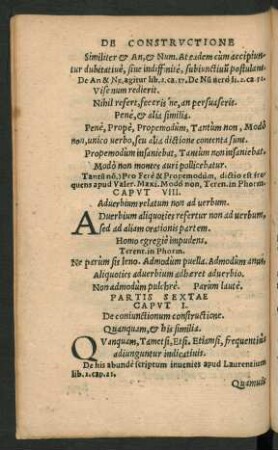 DE CONSTRVCTIONE
Similiter & An, & Num. At eidem cùm accipiun-
tur dubitatiuè, siue indiffinitè, subiunctiuũ postulant.
De An & Ne, agitur lib.2.ca.17. De Nũ uerò li.2.ca.
Vise num redierit.
Nihil refert, feceris 'ne, an persuaseris.
Penè, & alia similia.
Penè, Propè, Propemodùm, Tantùm non, Modò
non, unico uerbo, seu alia dictione contenta sunt.
Propemodùm insaniebat, Tantùm non insaniebat.
Modò non montes auri pollicebatur.
Tantũ nõ,) Pro Ferè & Propemodùm, dictio est fre-
quens apud Valer. Maxi. Modò non, Teren. in Phorm.
CAPVT VIII.
Aduerbium relatum non ad uerbum.
ADuerbium aliquoties refertur non ad uerbum,
sed ad aliam orationis partem.
Homo egregiè impudens,
Terent. in Phorm.
Ne parùm sis leno. Admodùm puella. Admodùm anus
Aliquoties aduerbium adhæret aduerbio.
Non admodùm pulchrè. Parùm lautè.
PARTIS SEXTAE
CAPVT I.
De coniunctionum constructione.
Quanquam, & his similia.
QVanquam, Tametsi, Etsi, Etiamsi, frequentiùs
adiunguntur indicatiuis.
De his abundè scriptum inuenies apud Laurentium
lib.2.cap.21.
Quamuis